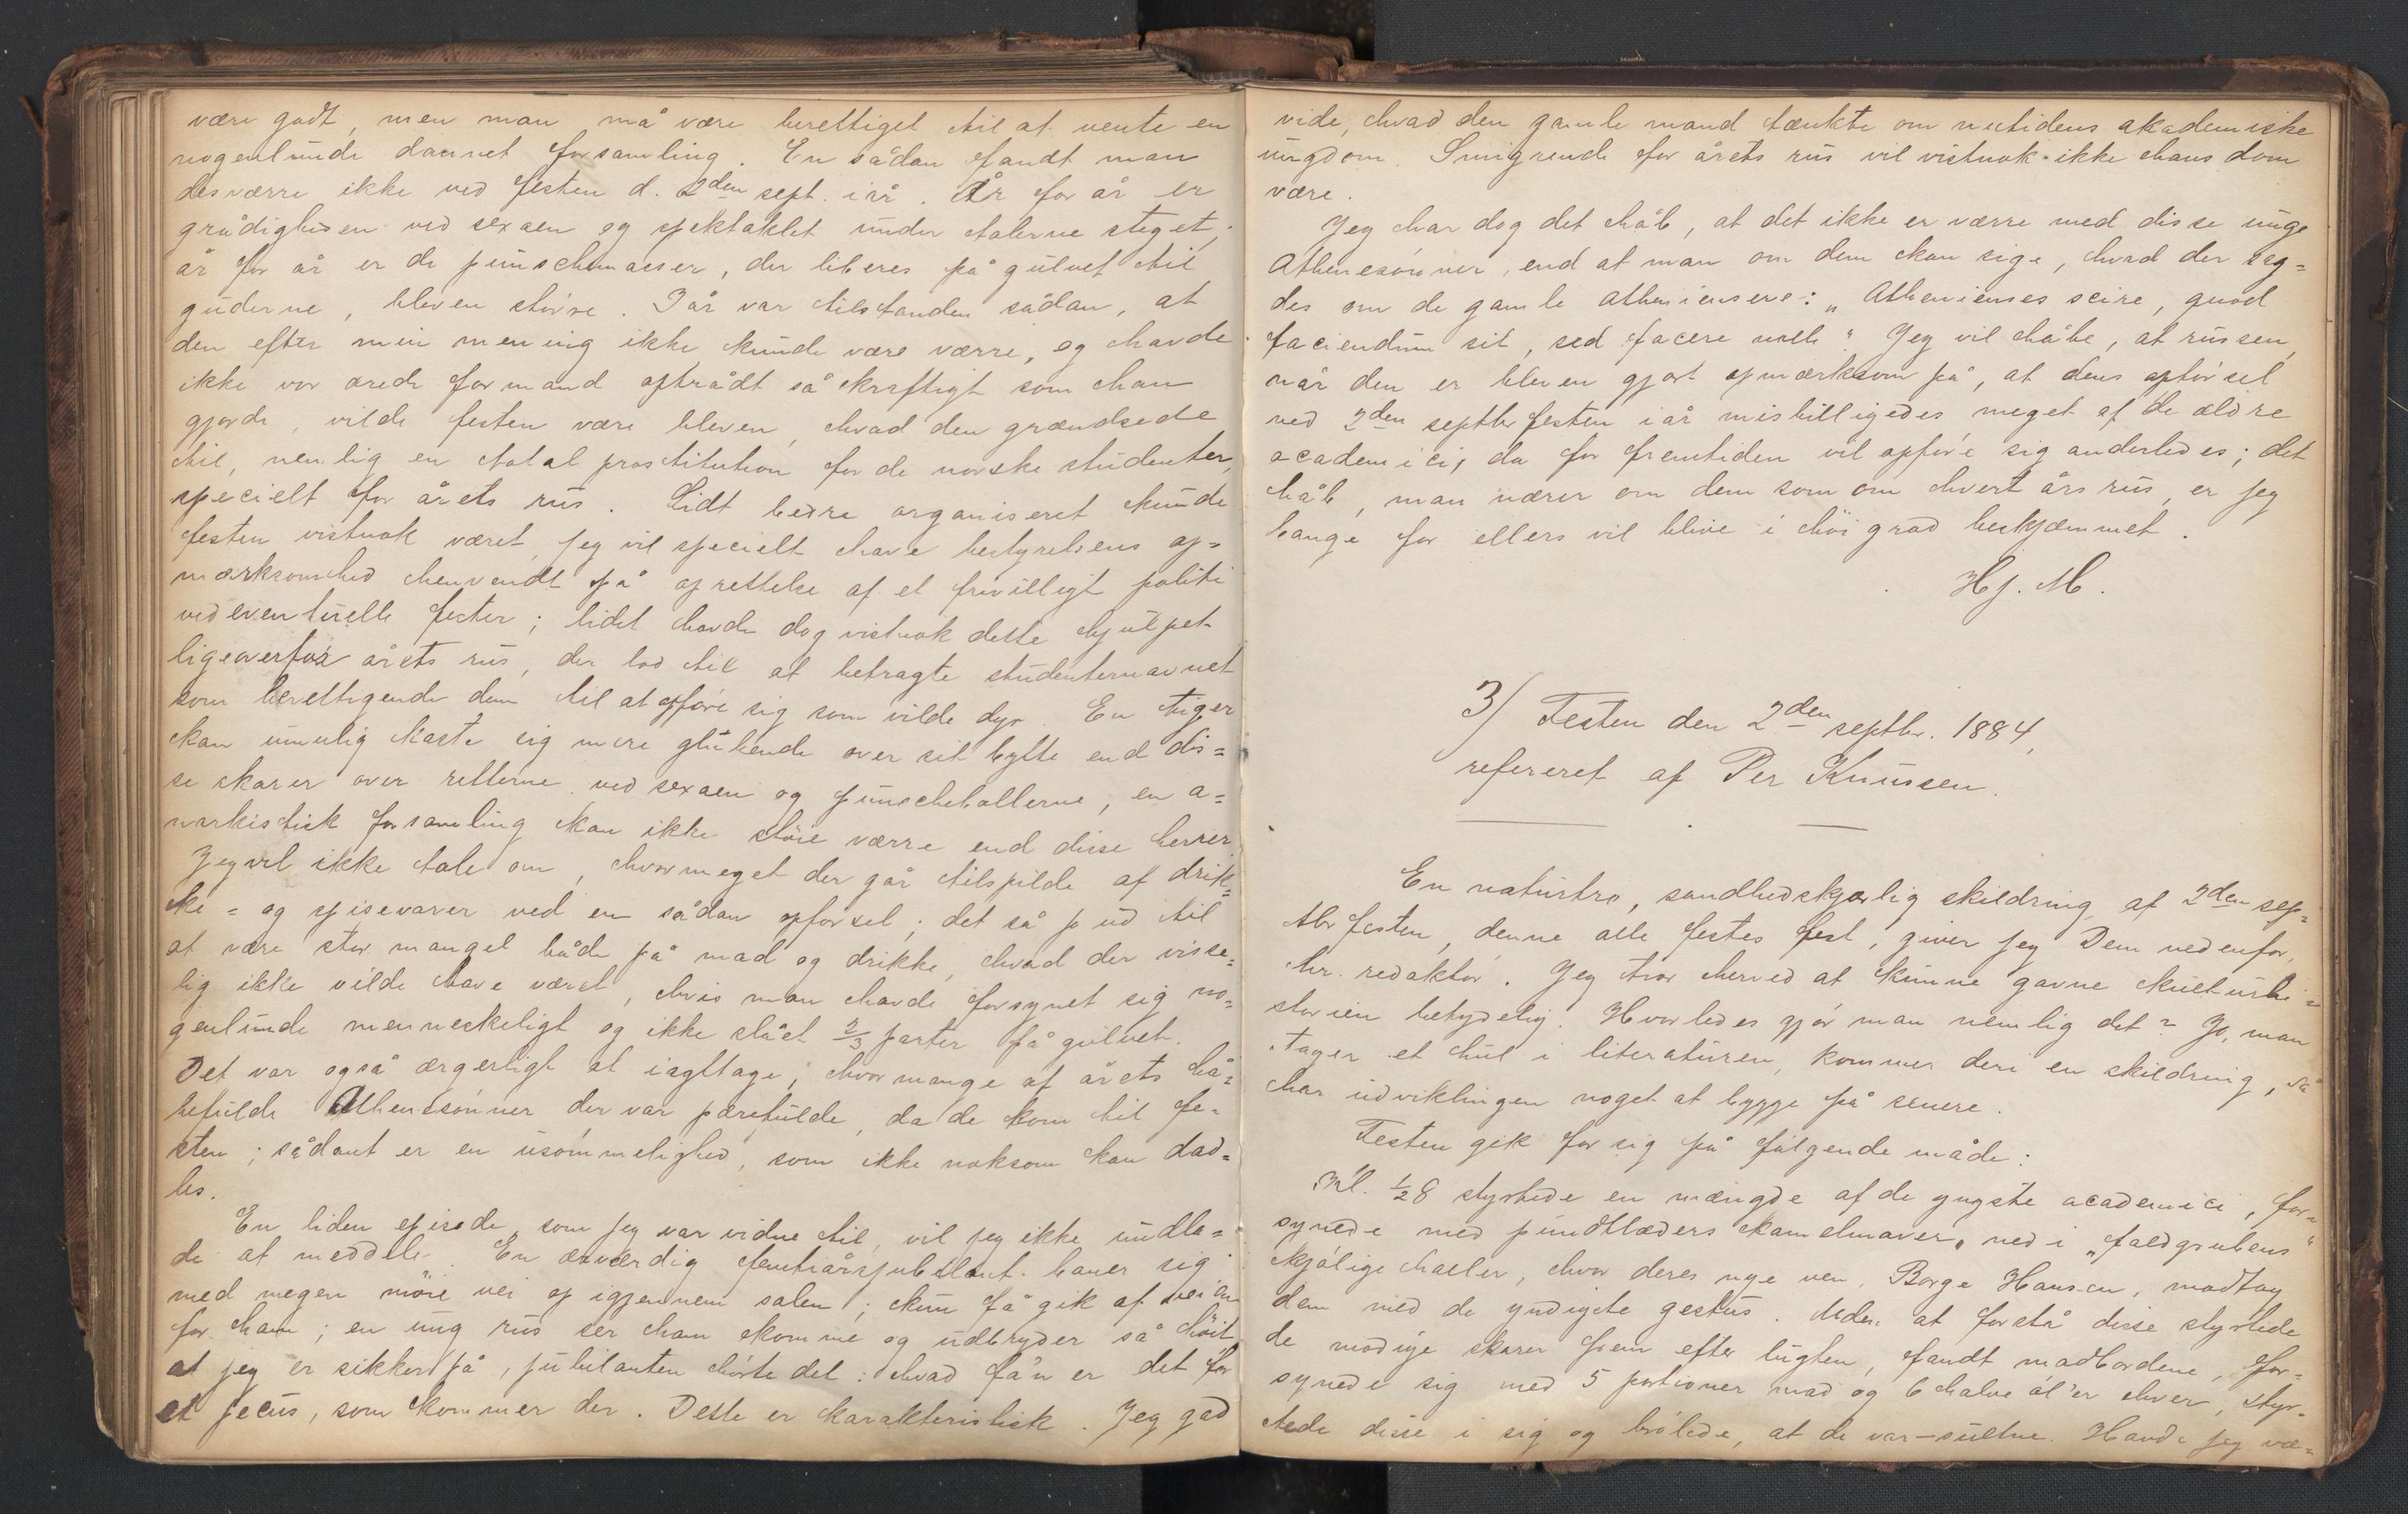 være godt, men man må være berettiget til at vente en
nogenlunde dannet forsamling. En sådan fandt man
desværre ikke ved festen d. 2den sept. i år. År for år er
grådigheden ved sexaen og spektaklet under talerne steget,
år for år er de punschemasser, der liberes på gulvet til
guderne, bleven større. I år var tilstanden sådan, at
den efter min mening ikke kunde være værre, og havde
ikke vor ærede formand optrådt så kraftigt som han
gjorde, vilde festen være bleven, hvad den grændsede
til, nemlig en total prostitution for de norske studenter,
specielt for årets rus. Lidt bedre organiseret kunde
festen vistnok været, jeg vil specielt have bestyrelsens op=
mærksomhed henvendt på oprettelse af et frivilligt politi
ved eventuelle fester; lidet havde dog vistnok dette hjulpet
ligeoverfor årets rus, der lod til at betragte studenternavnet
som berettigende dem til at opføre sig som vilde dyr. En tiger
kan umulig kaste sig mere glubende over sit bytte end dis=
se skarer over retterne ved sexaen og punschebollerne, en a=
narkistisk forsamling kan ikke støie værre end disse herrer.
Jeg vil ikke tale om, hvormeget der går tilspilde af drik=
ke= og spisevarer ved en sådan opførsel; det så jo ud til
at være stor mangel både på mad og drikke, hvad der visse=
lig ikke vilde have været, hvis man havde forsynet sig no=
genlunde menneskeligt og ikke slået 2/3 parter på gulvet.
Det var også ærgerligt at iagttage, hvor mange af årets hå=
befulde Athenesønner der var pærefulde, da de kom til fe=
sten; sådant er en usømmelighed, som ikke noksom kan dad=
les.
En liden episode, som jeg var vidne til, vil jeg ikke undla=
de at meddele. En ærværdig femtiårsjubilant baner sig
med megen møie vei op igjennem salen; kun få gik af veien
for ham; en ung rus ser ham komme og udbryder så høit,
at jeg er sikker på, jubilanten hørte det: hvad fa'n er det for
et fecus, som kommer der. Dette er karakteristisk. Jeg gad
vide, hvad den gamle mand tænkte om nutidens akademiske
ungdom. Smigrende for årets rus vil vistnok ikke hans dom
være.
Jeg har dog det håb, at det ikke er værre med disse unge
Athenesønner, end at man om dem kan sige, hvad der sag=
des om de gamle atheniensere: „Athenienses scire, quod
faciendum sit, sed facere nolle“ Jeg vil håbe, at russen,
når den er bleven gjort opmærksom på, at dens opførsel
ved 2den septbr festen i år misbilligedes meget af de ældre
academici, da for fremtiden vil opføre sig anderledes; det
håb, man nærer om dem som om hvert års rus, er jeg
bange for ellers vil blive i høi grad beskjæmmet.
Hj. M.
3) Festen den 2den septbr. 1884,
refereret af Per Knussen.
En naturtro, sandhedskjærlig skildring af 2den sep=
tbr festen, denne alle festes fest, giver jeg Dem nedenfor,
hr. redaktør. Jeg tror herved at kunne gavne kulturhi=
storien betydelig. Hvorledes gjør man nemlig det? Jo, man
tager et hul i literaturen, kommer deri en skildring, så
har udviklingen noget at bygge på senere.
Festen gik for sig på følgende måde:
Kl. 1/2 8 styrtede en mængde af de yngste academici, for=
synede med pundtlæders kamelmaver, ned i „faldgrubens“
kjølige haller, hvor deres nye ven, Borge Hansen, modtog
dem med de yndigste gestus. Uden at forstå disse styrtede
de modige skarer frem efter lugten, fandt madbordene, for=
synede sig med 5 portioner mad og 6 halve øl'er hver, styr=
tede disse i sig og brølede, at de var – sultne. Havde jeg væ=